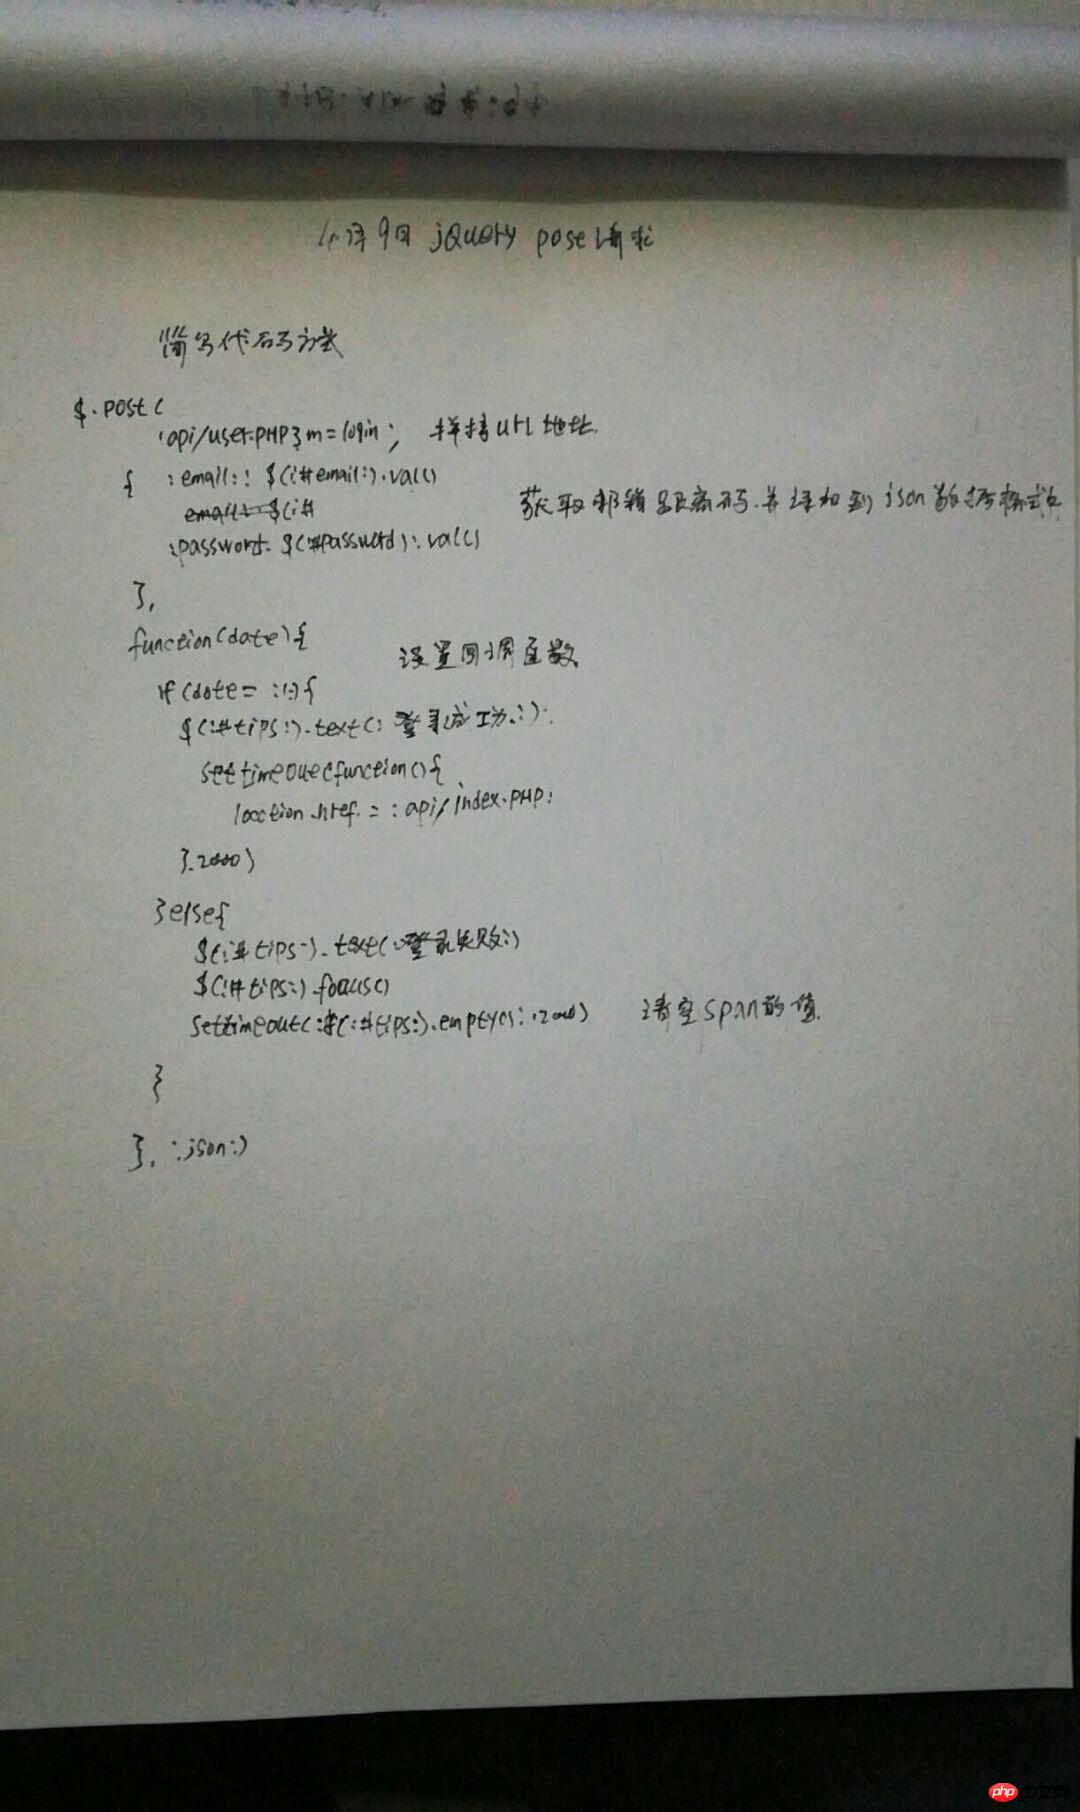 4月9日 jQuery pose请求
简写代码方式
$.post(
'api/user.PHP?m=login; 拼接url地址.
{ :email:: $(:#email:).val()
email: $(:#
获取邮箱跟密码.并添加到json数据格式化
:password: $(:#password):.val()
},
function(date){
设置回调函数
if(date= :1:){
$(:#tips:).text(: 登录成功.:):
settimeout(function(){
location.href. = : api/index.PHP:
}.2000)
}else{
$(:#tips:).text(:登录失败:)
$(:#tips:).focus()
settimeout(:$(:#tips:).empty():.2000) 清空span的值.
}
}, :json:)
php中文网